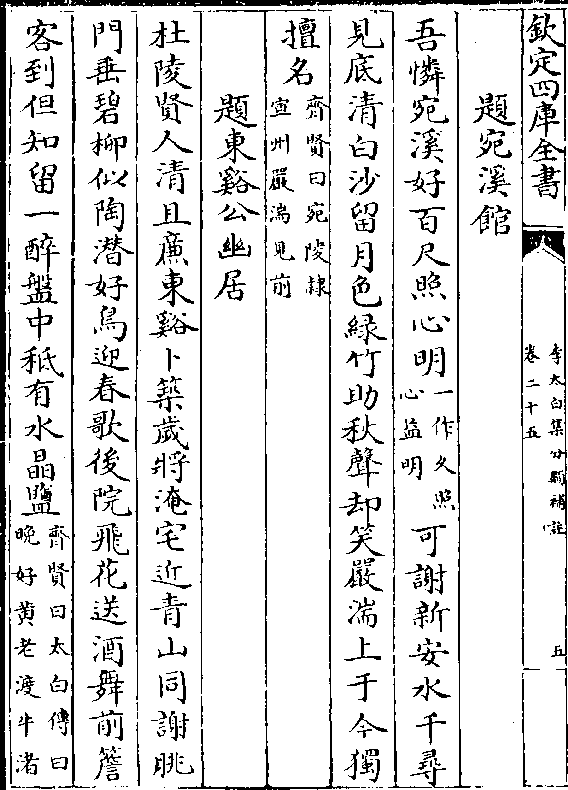 欽定四庫全書
李太白集分類補註
卷二十五
五
題宛溪館
吾憐宛溪好百尺照心明一作久照心益明可謝新安水千尋
見底清白沙留月色緑竹助秋聲却笑嚴湍上于今獨
擅名齊賢曰宛陵隸宣州嚴湍見前
題東谿公幽居
杜陵賢人清且廉東谿卜築歲將淹宅近青山同謝朓
門垂碧柳似陶潜好鳥迎春歌後院飛花送酒舞前簷
客到但知留一醉盤中秪有水晶鹽齊賢曰太白傳曰晚好黄老渡牛渚